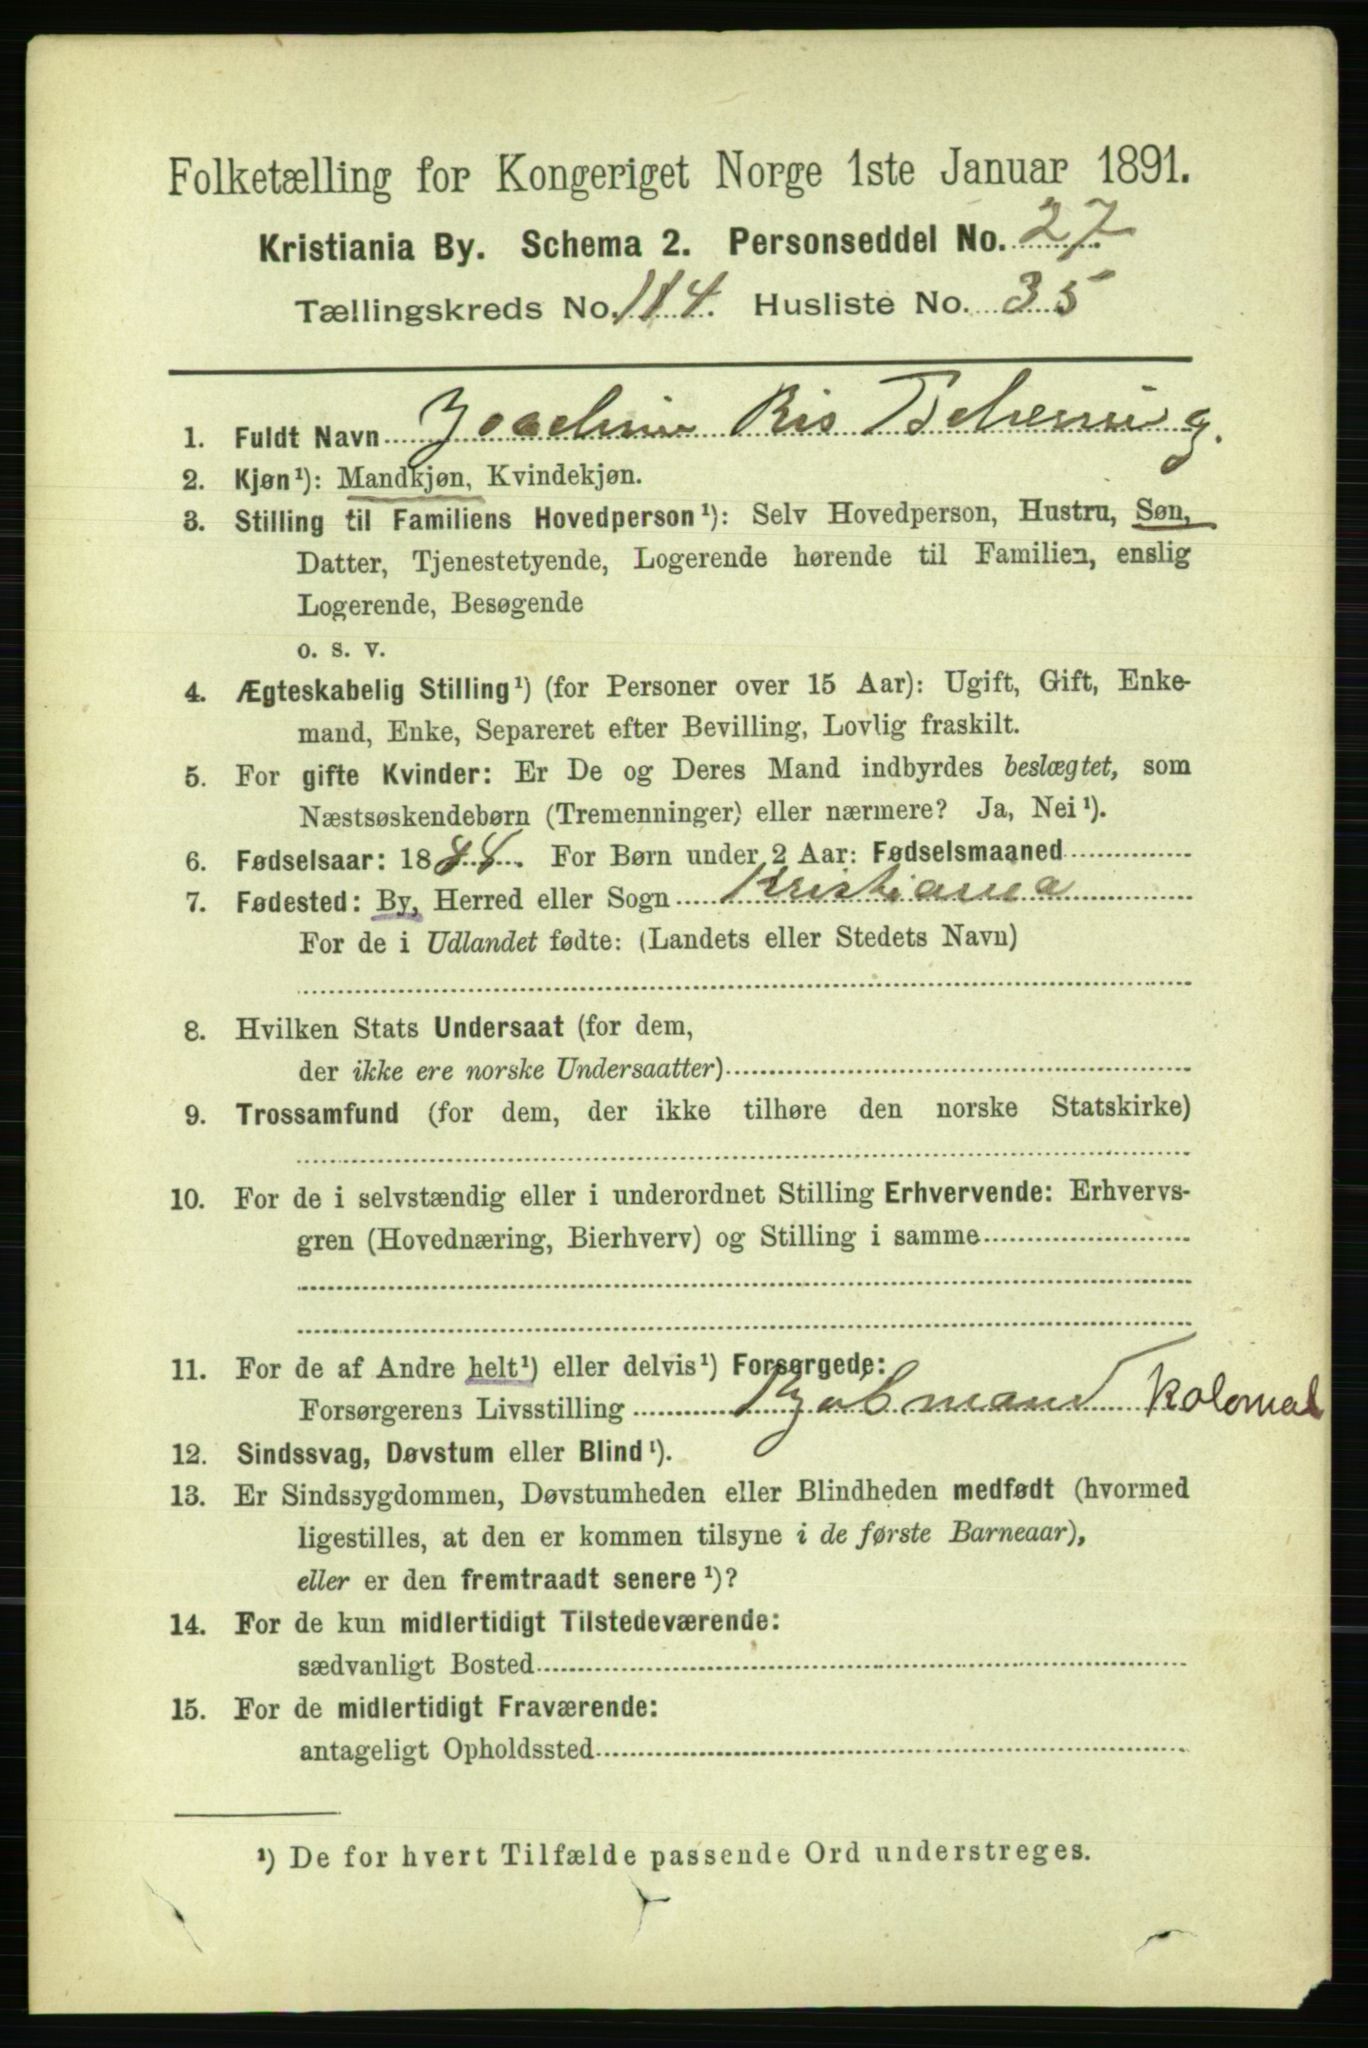 Folketælling for Kongeriget Norge 1ste Januar 1891.
Kristiania By. Schema 2. Personseddel No. 27
Tællingskreds No. 114. Husliste No. 35
1. Fuldt Navn Joachim Ris Tscherning.
2. Kjøn¹): Mandkjøn, Kvindekjøn.
3. Stilling til Familiens Hovedperson¹): Selv Hovedperson, Hustru, Søn,
Datter, Tjenestetyende, Logerende hørende til Familien, enslig
Logerende, Besøgende
o. s. v.
4. Ægteskabelig Stilling¹) (for Personer over 15 Aar): Ugift, Gift, Enke-
mand, Enke, Separeret efter Bevilling, Lovlig fraskilt.
5. For gifte Kvinder: Er De og Deres Mand indbyrdes beslægtet, som
Næstsøskendebørn (Tremenninger) eller nærmere? Ja, Nei¹).
6. Fødselsaar: 1888. For Børn under 2 Aar: Fødselsmaaned
7. Fødested: By, Herred eller Sogn Kristiania
For de i Udlandet fødte: (Landets eller Stedets Navn)
8. Hvilken Stats Undersaat (for dem,
der ikke ere norske Undersaatter)
9. Trossamfund (for dem, der ikke tilhøre den norske Statskirke)
10. For de i selvstændig eller i underordnet Stilling Erhvervende: Erhvervs-
gren (Hovednæring, Bierhverv) og Stilling i samme
11. For de af Andre helt¹) eller delvis¹) Forsørgede:
Forsørgerens Livsstilling Kjøbmand Kolonial
12. Sindssvag, Døvstum eller Blind¹).
13. Er Sindssygdommen, Døvstumheden eller Blindheden medfødt (hvormed
ligestilles, at den er kommen tilsyne i de første Barneaar),
eller er den fremtraadt senere¹)?
14. For de kun midlertidigt Tilstedeværende:
sædvanligt Bosted
15. For de midlertidigt Fraværende:
antageligt Opholdssted
¹) De for hvert Tilfælde passende Ord understreges.